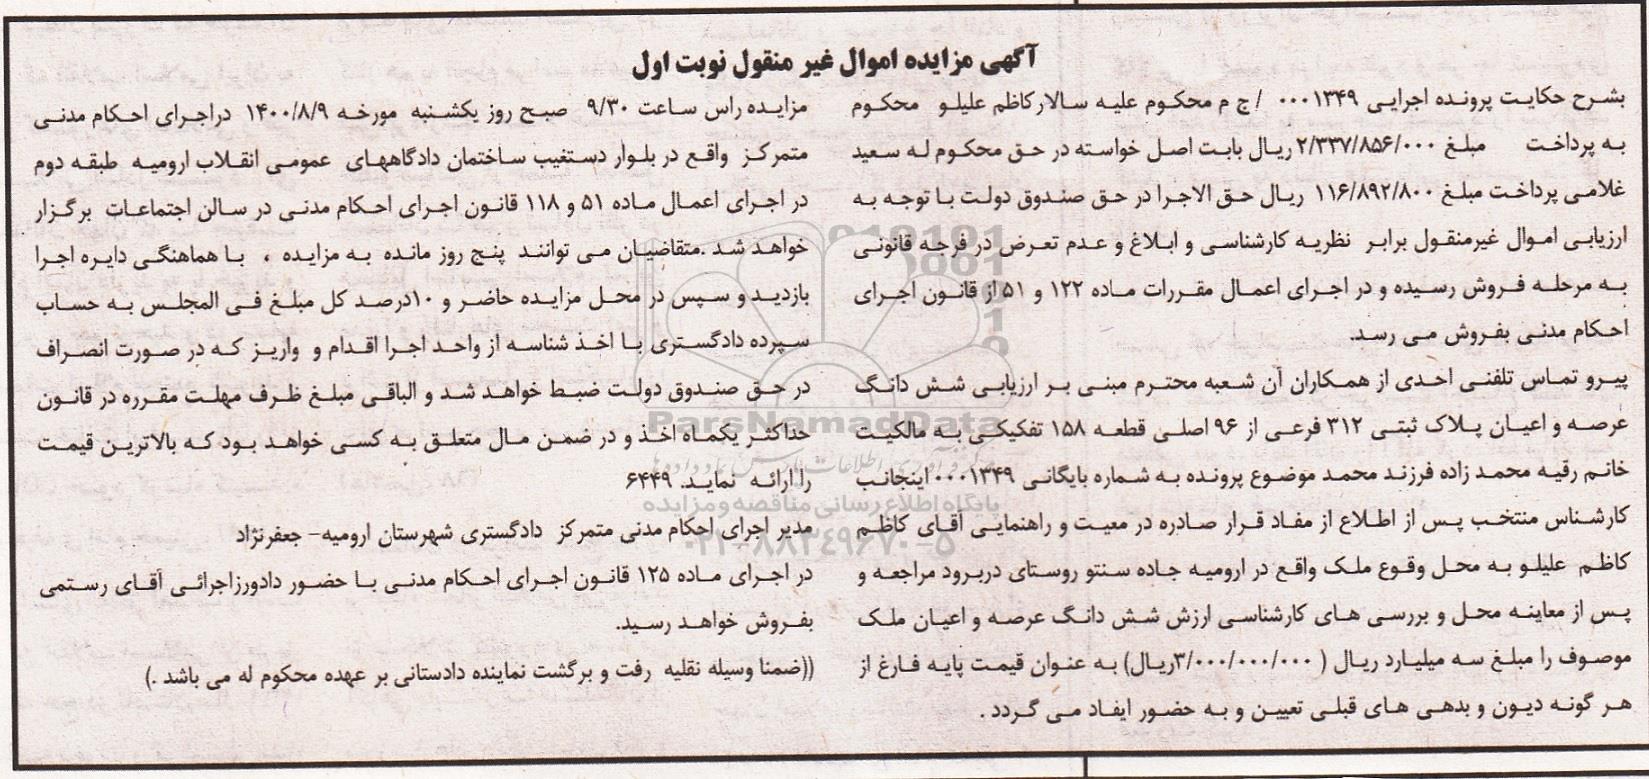 آگهی مزایده اموال غیر منقول نوبت اول
بشرح حکایت پرونده اجرایی ۰۰۰۱۳۴۹ / ج م محکوم علیه سالارکاظم علیلو محکوم
به پرداخت مبلغ ۲/۳۳۷/۸۵۶/۰۰۰ ریال بابت اصل خواسته در حق محکوم له سعید
غلامی پرداخت مبلغ ۱۱۶/۸۹۲/۸۰۰ ریال حق الاجرا در حق صندوق دولت با توجه به
ارزیابی اموال غیرمنقول برابر نظریه کارشناسی و ابلاغ و عدم تعرض در فرجه قانونی
به مرحله فروش رسیده و در اجرای اعمال مقررات ماده ۱۲۲ و ۵۱ از قانون اجرای
احکام مدنی بفروش می رسد.
پیرو تماس تلفنی احدی از همکاران آن شعبه محترم مبنی بر ارزیابی شش دانگ
عرصه و اعیان پلاک ثبتی ۳۱۲ فرعی از ۹۶ اصلی قطعه ۱۵۸ تفکیکی به مالکیت
خانم رقیه محمد زاده فرزند محمد موضوع پرونده به شماره بایگانی ۰۰۰۱۳۴۹ اینجانب
کارشناس منتخب پس از اطلاع از مفاد قرار صادره در معیت و راهنمایی آقای کاظم
کاظم علیلو به محل وقوع ملک واقع در ارومیه جاده سنتو روستای دربرود مراجعه و
پس از معاینه محل و بررسی های کارشناسی ارزش شش دانگ عرصه و اعیان ملک
موصوف را مبلغ سه میلیارد ریال ( ۳/۰۰۰/۰۰۰/۰۰۰ریال) به عنوان قیمت پایه فارغ از
هر گونه دیون و بدهی های قبلی تعیین و به حضور ایفاد می گردد .
مزایده راس ساعت ۹/۳۰ صبح روز یکشنبه مورخه ۱۴۰۰/۸/۹ دراجرای احکام مدنی
متمرکز واقع در بلوار دستغیب ساختمان دادگاههای عمومی انقلاب ارومیه طبقه دوم
در اجرای اعمال ماده ۵۱ و ۱۱۸ قانون اجرای احکام مدنی در سالن اجتماعات برگزار
خواهد شد .متقاضیان می توانند پنج روز مانده به مزایده ، با هماهنگی دایره اجرا
بازدید و سپس در محل مزایده حاضر و ۱۰درصد کل مبلغ فی المجلس به حساب
سپرده دادگستری با اخذ شناسه از واحد اجرا اقدام و واریز که در صورت انصراف
در حق صندوق دولت ضبط خواهد شد و الباقی مبلغ ظرف مهلت مقرره در قانون
حداکثر یکماه اخذ و در ضمن مال متعلق به کسی خواهد بود که بالاترین قیمت
را ارائه نماید. ۶۴۴۹
مدیر اجرای احکام مدنی متمرکز دادگستری شهرستان ارومیه- جعفرنژاد
در اجرای ماده ۱۲۵ قانون اجرای احکام مدنی با حضور دادورزاجرائی آقای رستمی
بفروش خواهد رسید.
((ضمنا وسیله نقلیه رفت و برگشت نماینده دادستانی بر عهده محکوم له می باشد .)
ParsNamadData
پایگاه اطلاع رسانی مناقصه و مزایده
۰۲۱-۸۸۳۴۹۶۷۰-۵